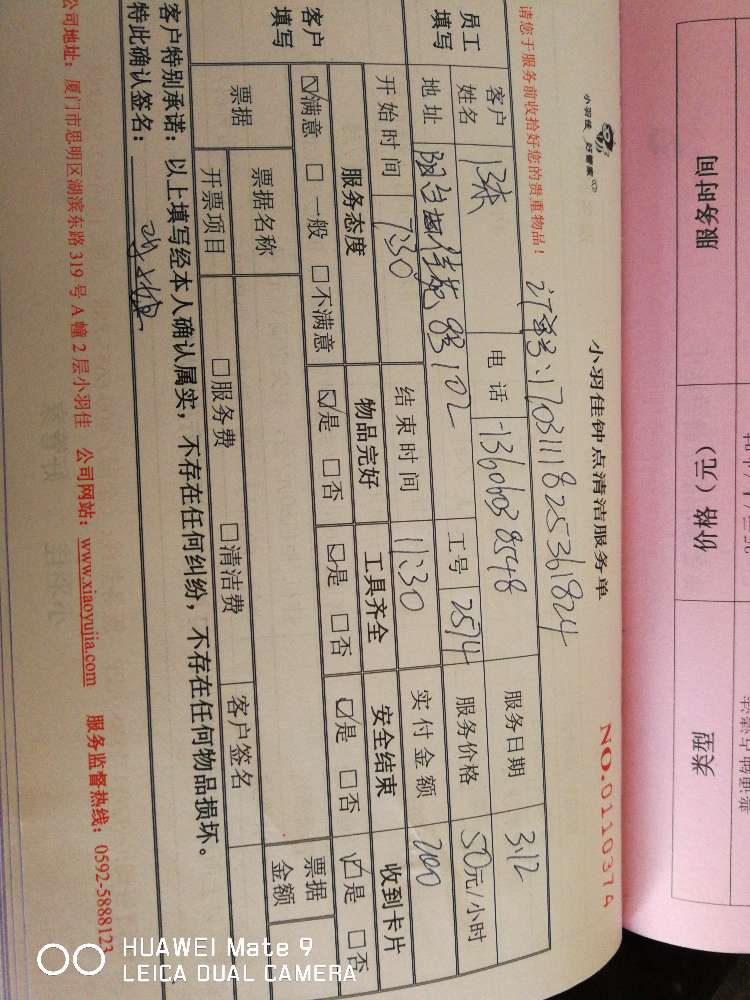 小羽佳 好管家
小羽佳钟点清洁服务单
NO.0110374
请您于服务前收拾好您的贵重物品！
订单号:1703111825361824
员工填写
客户姓名
电话 13606038548
服务日期 3.12
地址
83 102
工号 2574
服务价格 50元/小时
开始时间 7:30
结束时间 11:30
实付金额 200
客户填写
服务态度 物品完好 工具齐全 安全结束 收到卡片
☑满意 □一般 □不满意 ☑是 □否 ☑是 □否 ☑是 □否 ☑是 □否
票据
票据名称
票据金额
开票项目 □服务费 □清洁费 客户签名
客户特别承诺：以上填写经本人确认属实，不存在任何纠纷，不存在任何物品损坏。
特此确认签名：
公司地址：厦门市思明区湖滨东路319号A幢2层小羽佳 公司网站：www.xiaoyujia.com 服务监督热线：0592-5888123
服务时间
价格（元）
类型
HUAWEI Mate 9
LEICA DUAL CAMERA